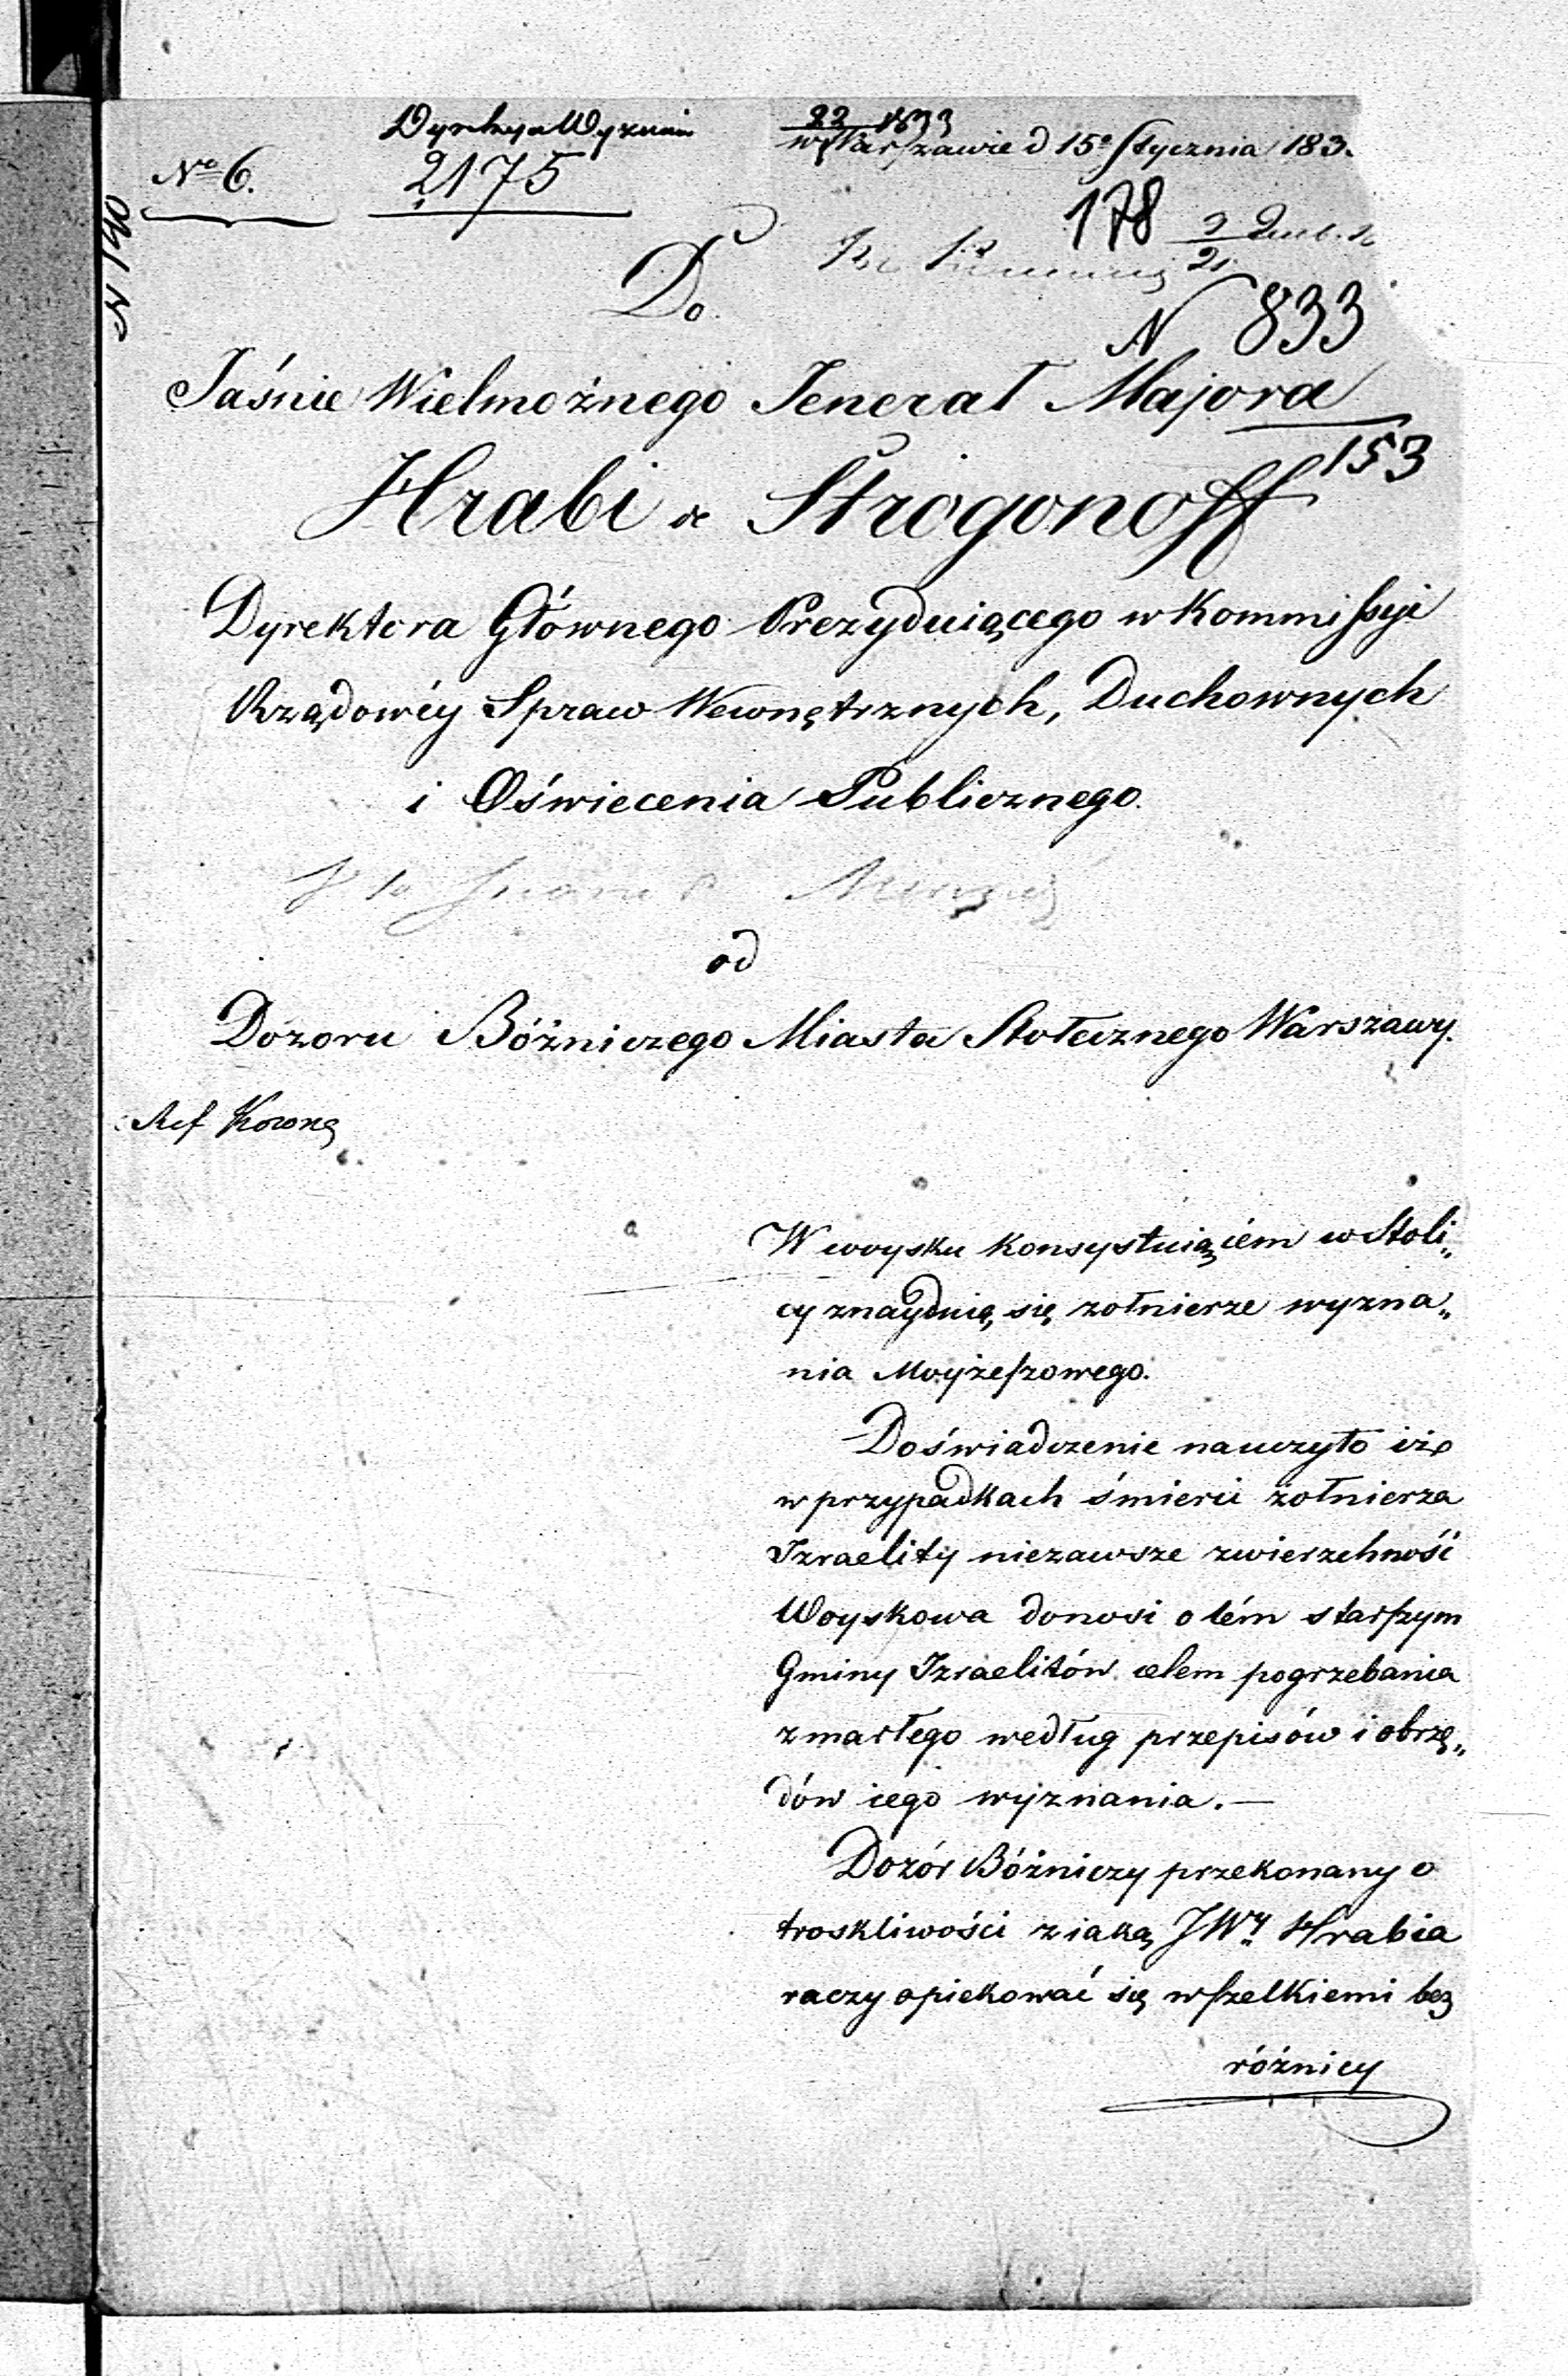 Nº 6.
Dyrekcya Wyznań
2175
22 1833
w Warszawie d 15º Stycznia 183.
178
Do
N 833
Jaśnie Wielmożnego Jenerał Majora
153
Hrabi de Strogonoff
Dyrektora Głównego Prezyduiącego w Kommissyi
Rządowéy Spraw Wewnętrznych, Duchownych
i Oświecenia Publicznego.
od
Dozoru Bóżniczego Miasta Stołecznego Warszawy.
Ref
W woysku konsystuiącém w Stoli„
cy znayduią się żołnierze wyzna„
nia Moyżeszowego.
Doświadczenie nauczyło iż
w przypadkach śmierci żołnierza
Izraelity niezawsze zwierzchność
Woyskowa donosi o tém starszym
Gminy Izraelitów celem pogrzebania
zmarłego według przepisów i obrzę„
dów iego wyznania.—
Dozór Bóżniczy przekonany o
troskliwości z iaką JWy Hrabia
raczy opiekować się wszelkiemi bez
różnicy